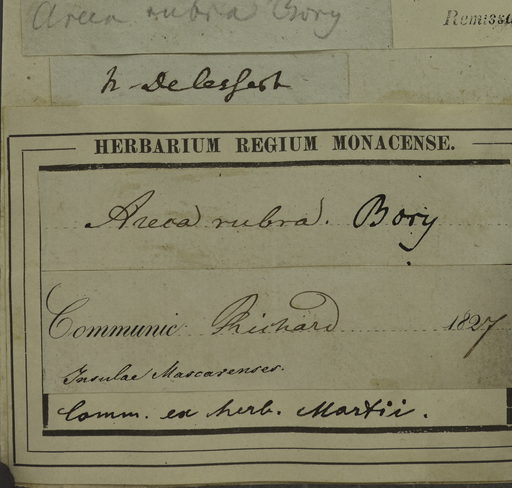 Areca rubra Bory
Remissu
h. Delessert
HERBARIUM REGIUM MONACENSE.
Areca rubra. Bory
Communic. Richard 1827
Insulae Mascarenses.
Comm. ex herb. Martii.